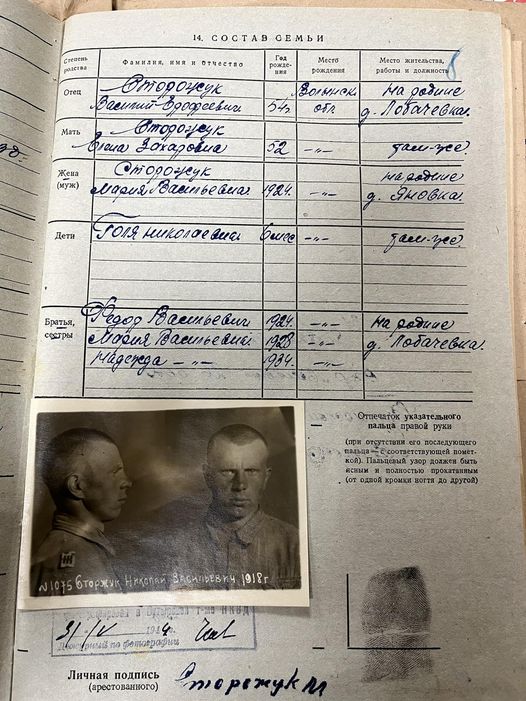 14. СОСТАВ СЕМЬИ
Степень родства
Фамилия, имя и отчество
Год рождения
Место рождения
Место жительства, работы и должность
Отец
Сторожук
Василий Ерофеевич
54г.
Волынск. обл.
на родине
д. Лобачевка.
Мать
Сторожук
Елена Захаровна
52
-"-
там-же.
Жена (муж)
Сторожук
Мария Васильевна
1924.
-"-
на родине
д. Яновка.
Дети
Галя Николаевна
6 мес
-"-
там-же.
Братья, сестры
Федор Васильевич
1924.
-"-
на родине
Мария Васильевна
1928
-"-
д. Лобачевка.
Надежда -"-
1934.
-"-
Отпечаток указательного
пальца правой руки
(при отсутствии его последующего
пальца — с соответствующей помет-
кой). Пальцевый узор должен быть
ясным и полностью прокатанным
(от одной кромки ногтя до другой)
N1075 Сторжук Николай Васильевич 1918г
НКВД
31/IV 1944 г.
Дежурный по фотографии
Личная подпись
(арестованного)
Сторожук Н